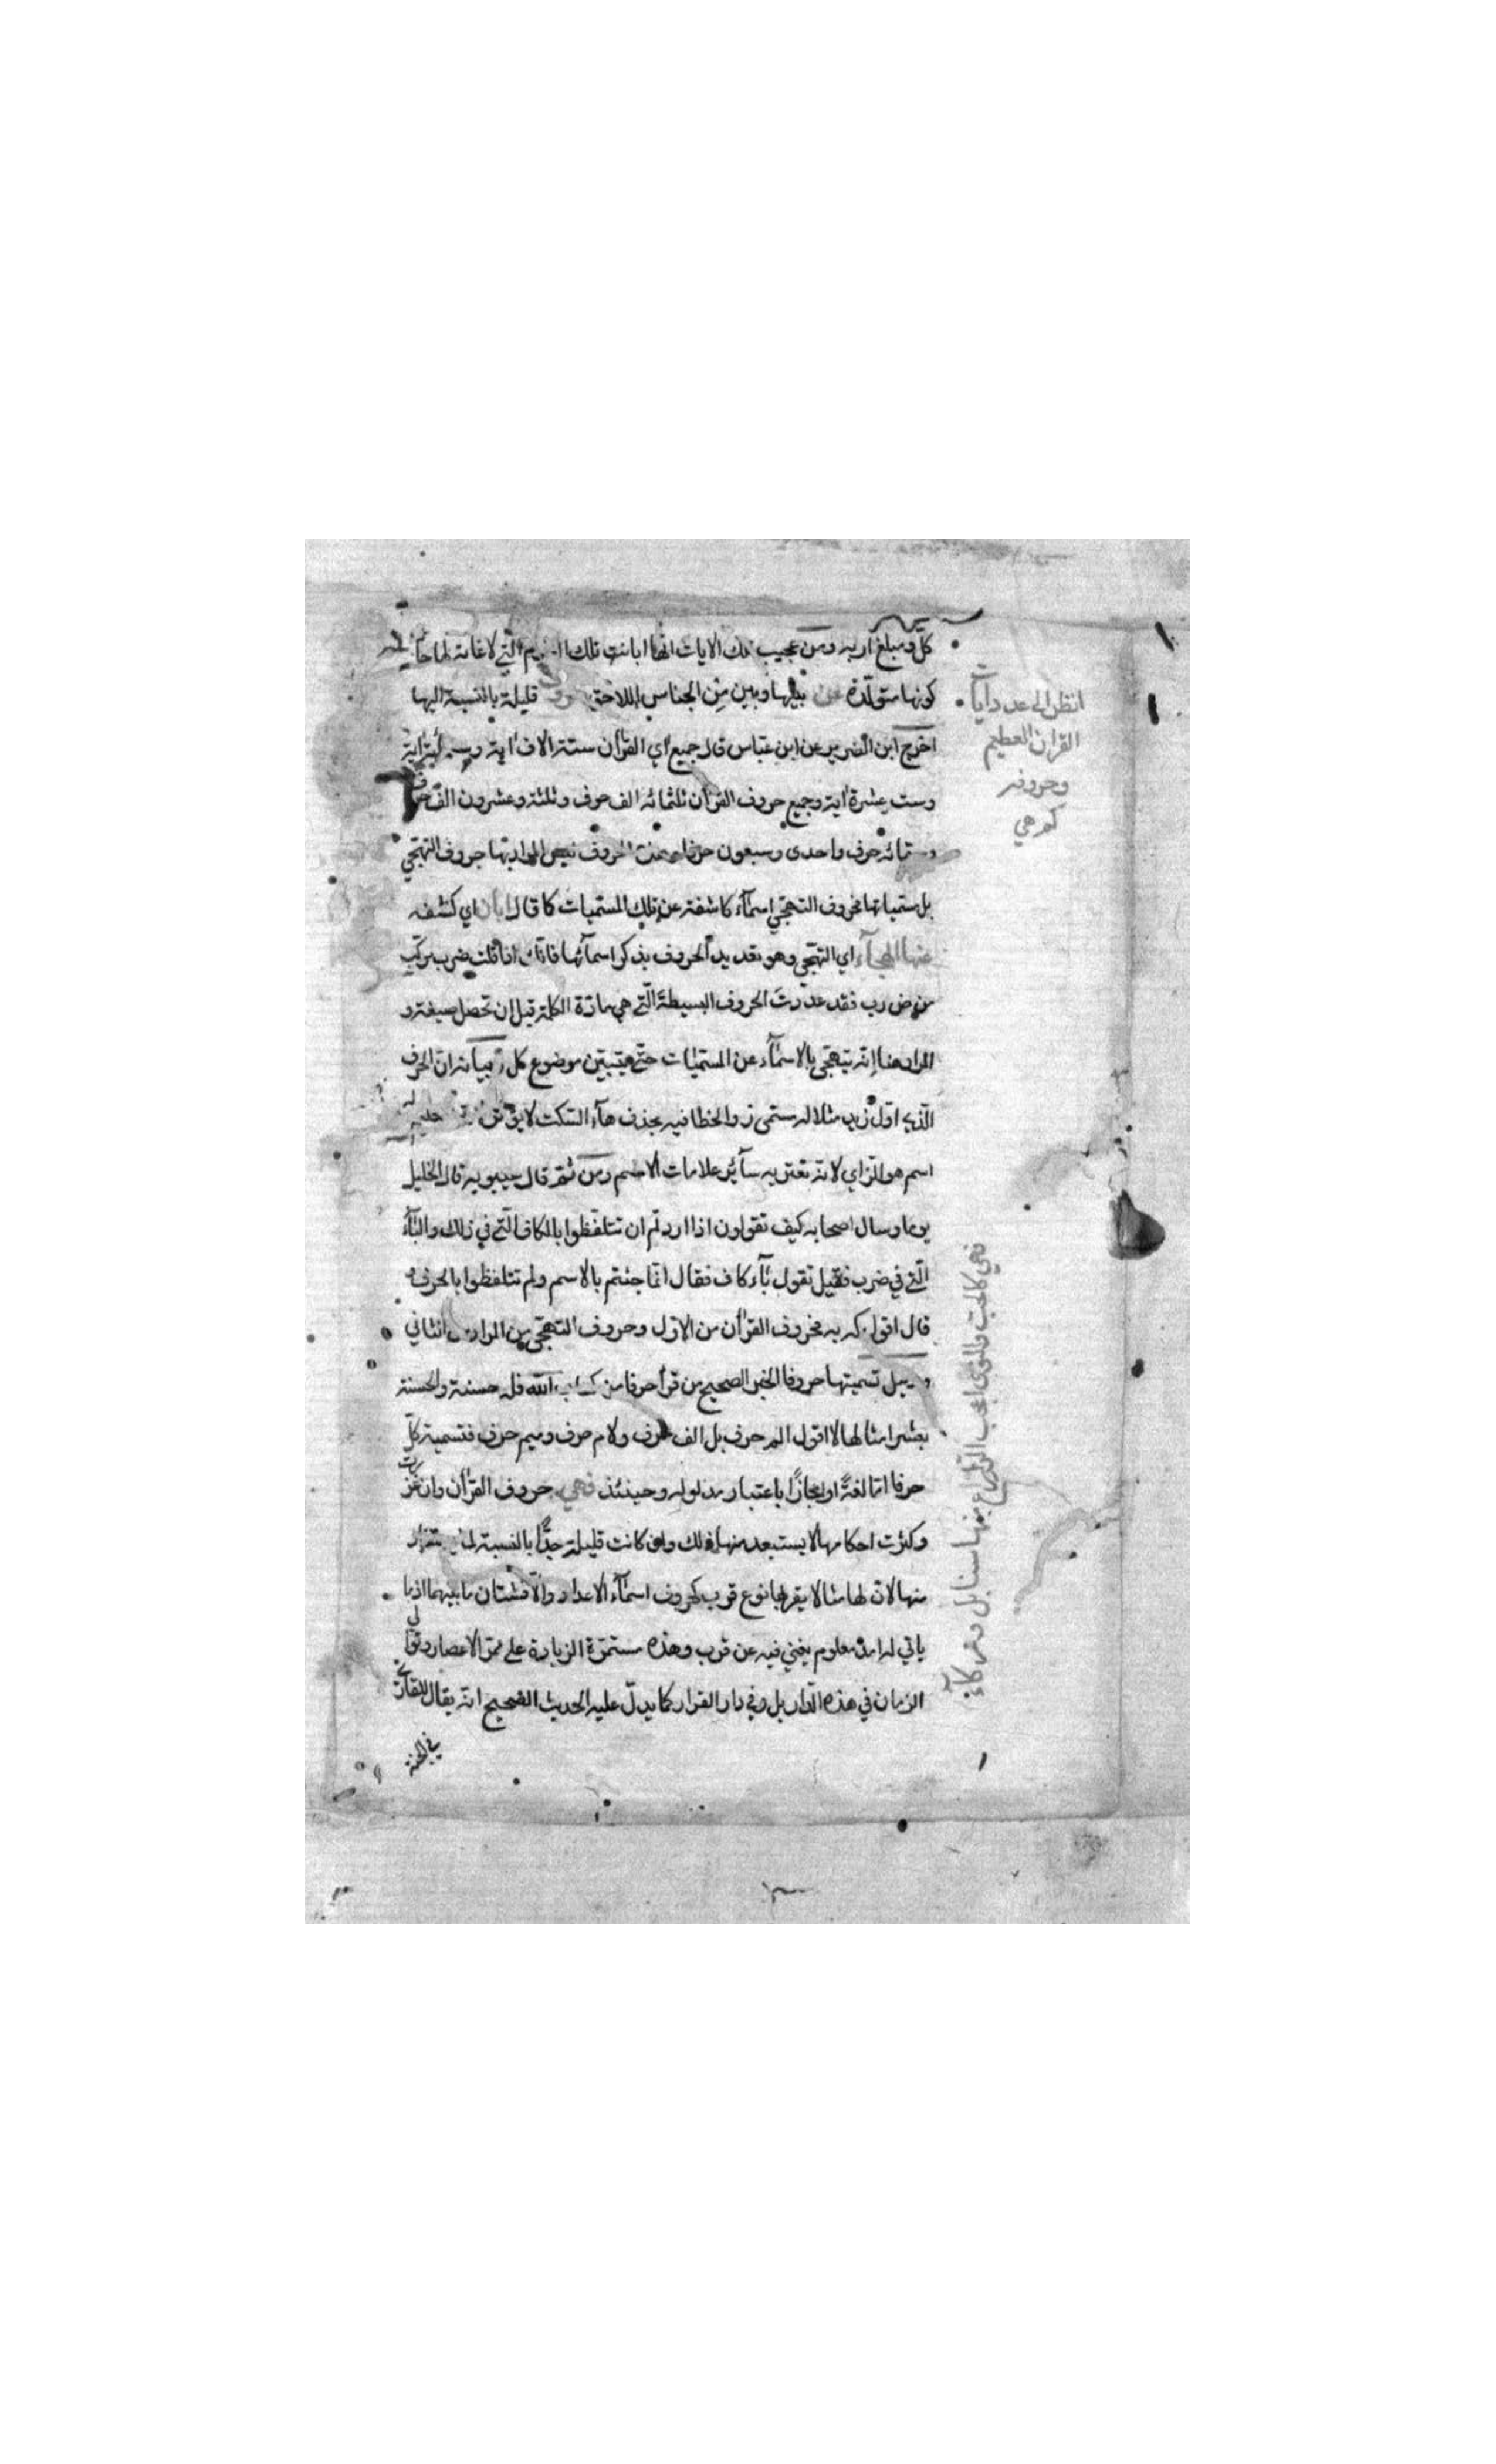 كل ومبلغ اربه ومن عجيب تلك الايات انها ابانت تلك التي لا غاية لها حال
كونها متولدة عن بينها وبين من الجناس اللاحق حروف قليلة بالنسبة اليها
اخرج ابن الضريس عن ابن عباس قال جميع اي القرآن ستة الاف اية وستمائة اية
وست عشرة اية وجميع حروف القرآن ثلثمائة الف حرف وثلثة وعشرون الف حرف
وستمائة حرف واحدى وسبعون حرفا الحروف ليس المراد بها حروف التهجي
بل مسمياتها فحروف التهجي اسماء كاشفة عن تلك المسميات كما قال ابان اي كشف
عنها الهجاء اي التهجي وهو تعديد الحروف بذكر اسمائها فانك اذا قلت ضرب مركب
من ض رب فقد عددت الحروف البسيطة التي هي مادة الكلمة قبل ان تحصل صيغة و
المراد هنا انه يتهجى بالاسماء عن المسميات حتى يتبين موضوع كل بيانه ان الحرف
الذي اول زيد مثلا له مسمى ز والخطا فيه بحذف هاء السكت لا يؤثر
اسم هو الزاي لانه تعتريه سائر علامات الاسم ومن ثم قال سيبويه قال الخليل
يوما وسال اصحابه كيف تقولون اذا اردتم ان تتلفظوا بالكاف التي في ذلك والباء
التي في ضرب فقيل نقول باء كاف فقال انما جئتم بالاسم ولم تتلفظوا بالحرف و
قال اقول كه به فحروف القرآن من الاول وحروف التهجي من المراد الثاني
تسميتها حروفا الخبر الصحيح من قرأ حرفا من كتاب الله فله حسنة والحسنة
بعشر امثالها لا اقول الم حرف بل الف حرف ولام حرف وميم حرف فتسمية كل
حرفا اما لغة او مجازا باعتبار مدلوله وحينئذ فهي حروف القرآن وان غزرت
وكثرت احكامها لا يستبعد منها ذلك وان كانت قليلة جدا بالنسبة لما
منها لان لها مثالا يقربها نوع قرب كحروف اسماء الاعداد والا فشتان ما بينهما اذ ما
ياتي له امد معلوم يفنى فيه عن قرب وهذه مستمرة الزيادة على ممر الاعصار وتوالي
الزمان في هذه الدار بل وفي دار القرار كما يدل عليه الحديث الصحيح انه يقال للقارئ
في الجنة
انظر الى عدد ايات
القران العظيم
وحروفه
كم هي
فهي كالحب والنوى اعجب الزراع منها سنابل وزكاء